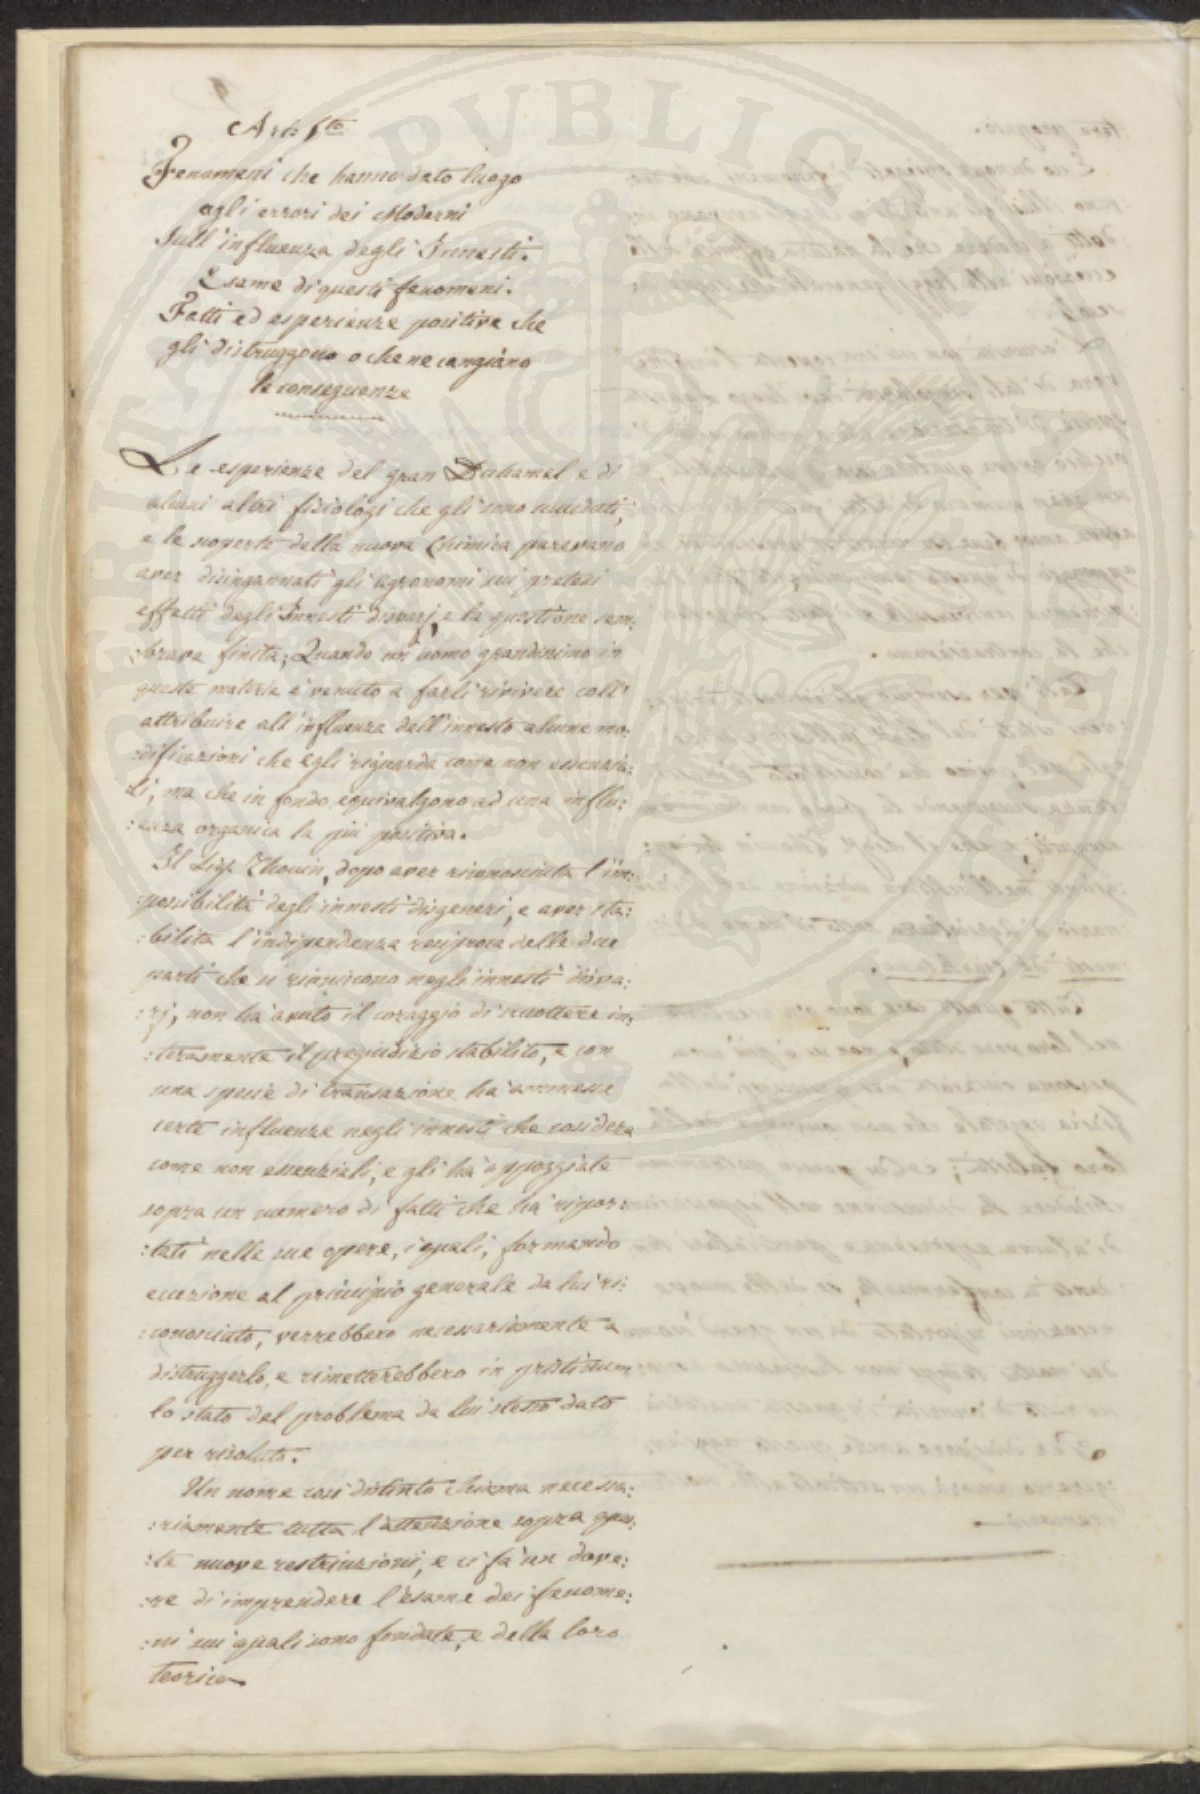 Art: 1to
Fenomeni che hanno dato luogo
agli errori dei Moderni
Sull'influenza degli Innesti.
Esame di questi fenomeni.
Fatti ed esperienze positive che
gli distruggono o che ne cangiano
le conseguenze
Le esperienze del gran Duhamel e di
alcuni altri fisiologi che gli sono succeduti,
e le scoperte della nuova Chimica parevano
aver disingannati gli agronomi sui pretesi
effetti degli Innesti disvarj, e la questione sem:
:brava finita; Quando un uomo grandissimo in
queste materie è venuto a farli rivivere coll'
attribuire all'influenza dell'innesto alcune mo:
:dificazioni che egli riguarda come non essenzia:
:li, ma che in fondo equivalgono ad una influ:
:enza organica la più positiva.
Il Sig. Thouin, dopo aver riconosciuta l'im:
:possibilità degli innesti disgeneri, e aver sta:
:bilita l'indipendenza reciproca delle due
parti che si riuniscono negli innesti disva:
:rj, non ha avuto il coraggio di scuotere in:
:teramente il pregiudizio stabilito, e con
una specie di transazione ha ammesse
certe influenze negli innesti che cosidera
come non essenziali, e gli ha appoggiate
sopra un numero di fatti che ha ripor:
:tati nelle sue opere, i quali, formando
eccezione al principio generale da lui ri:
:conosciuto, verrebbero necessariamente a
distruggerlo, e rimetterebbero in pristinum
lo stato del problema da lui stesso dato
per risoluto.
Un nome così distinto chiama necessa:
:riamente tutta l'attenzione sopra ques:
:te nuove restrizioni, e ci fà un dove:
:re di imprendere l'esame dei fenome:
:ni sui quali sono fondate, e della loro
teorica
PVBLIC